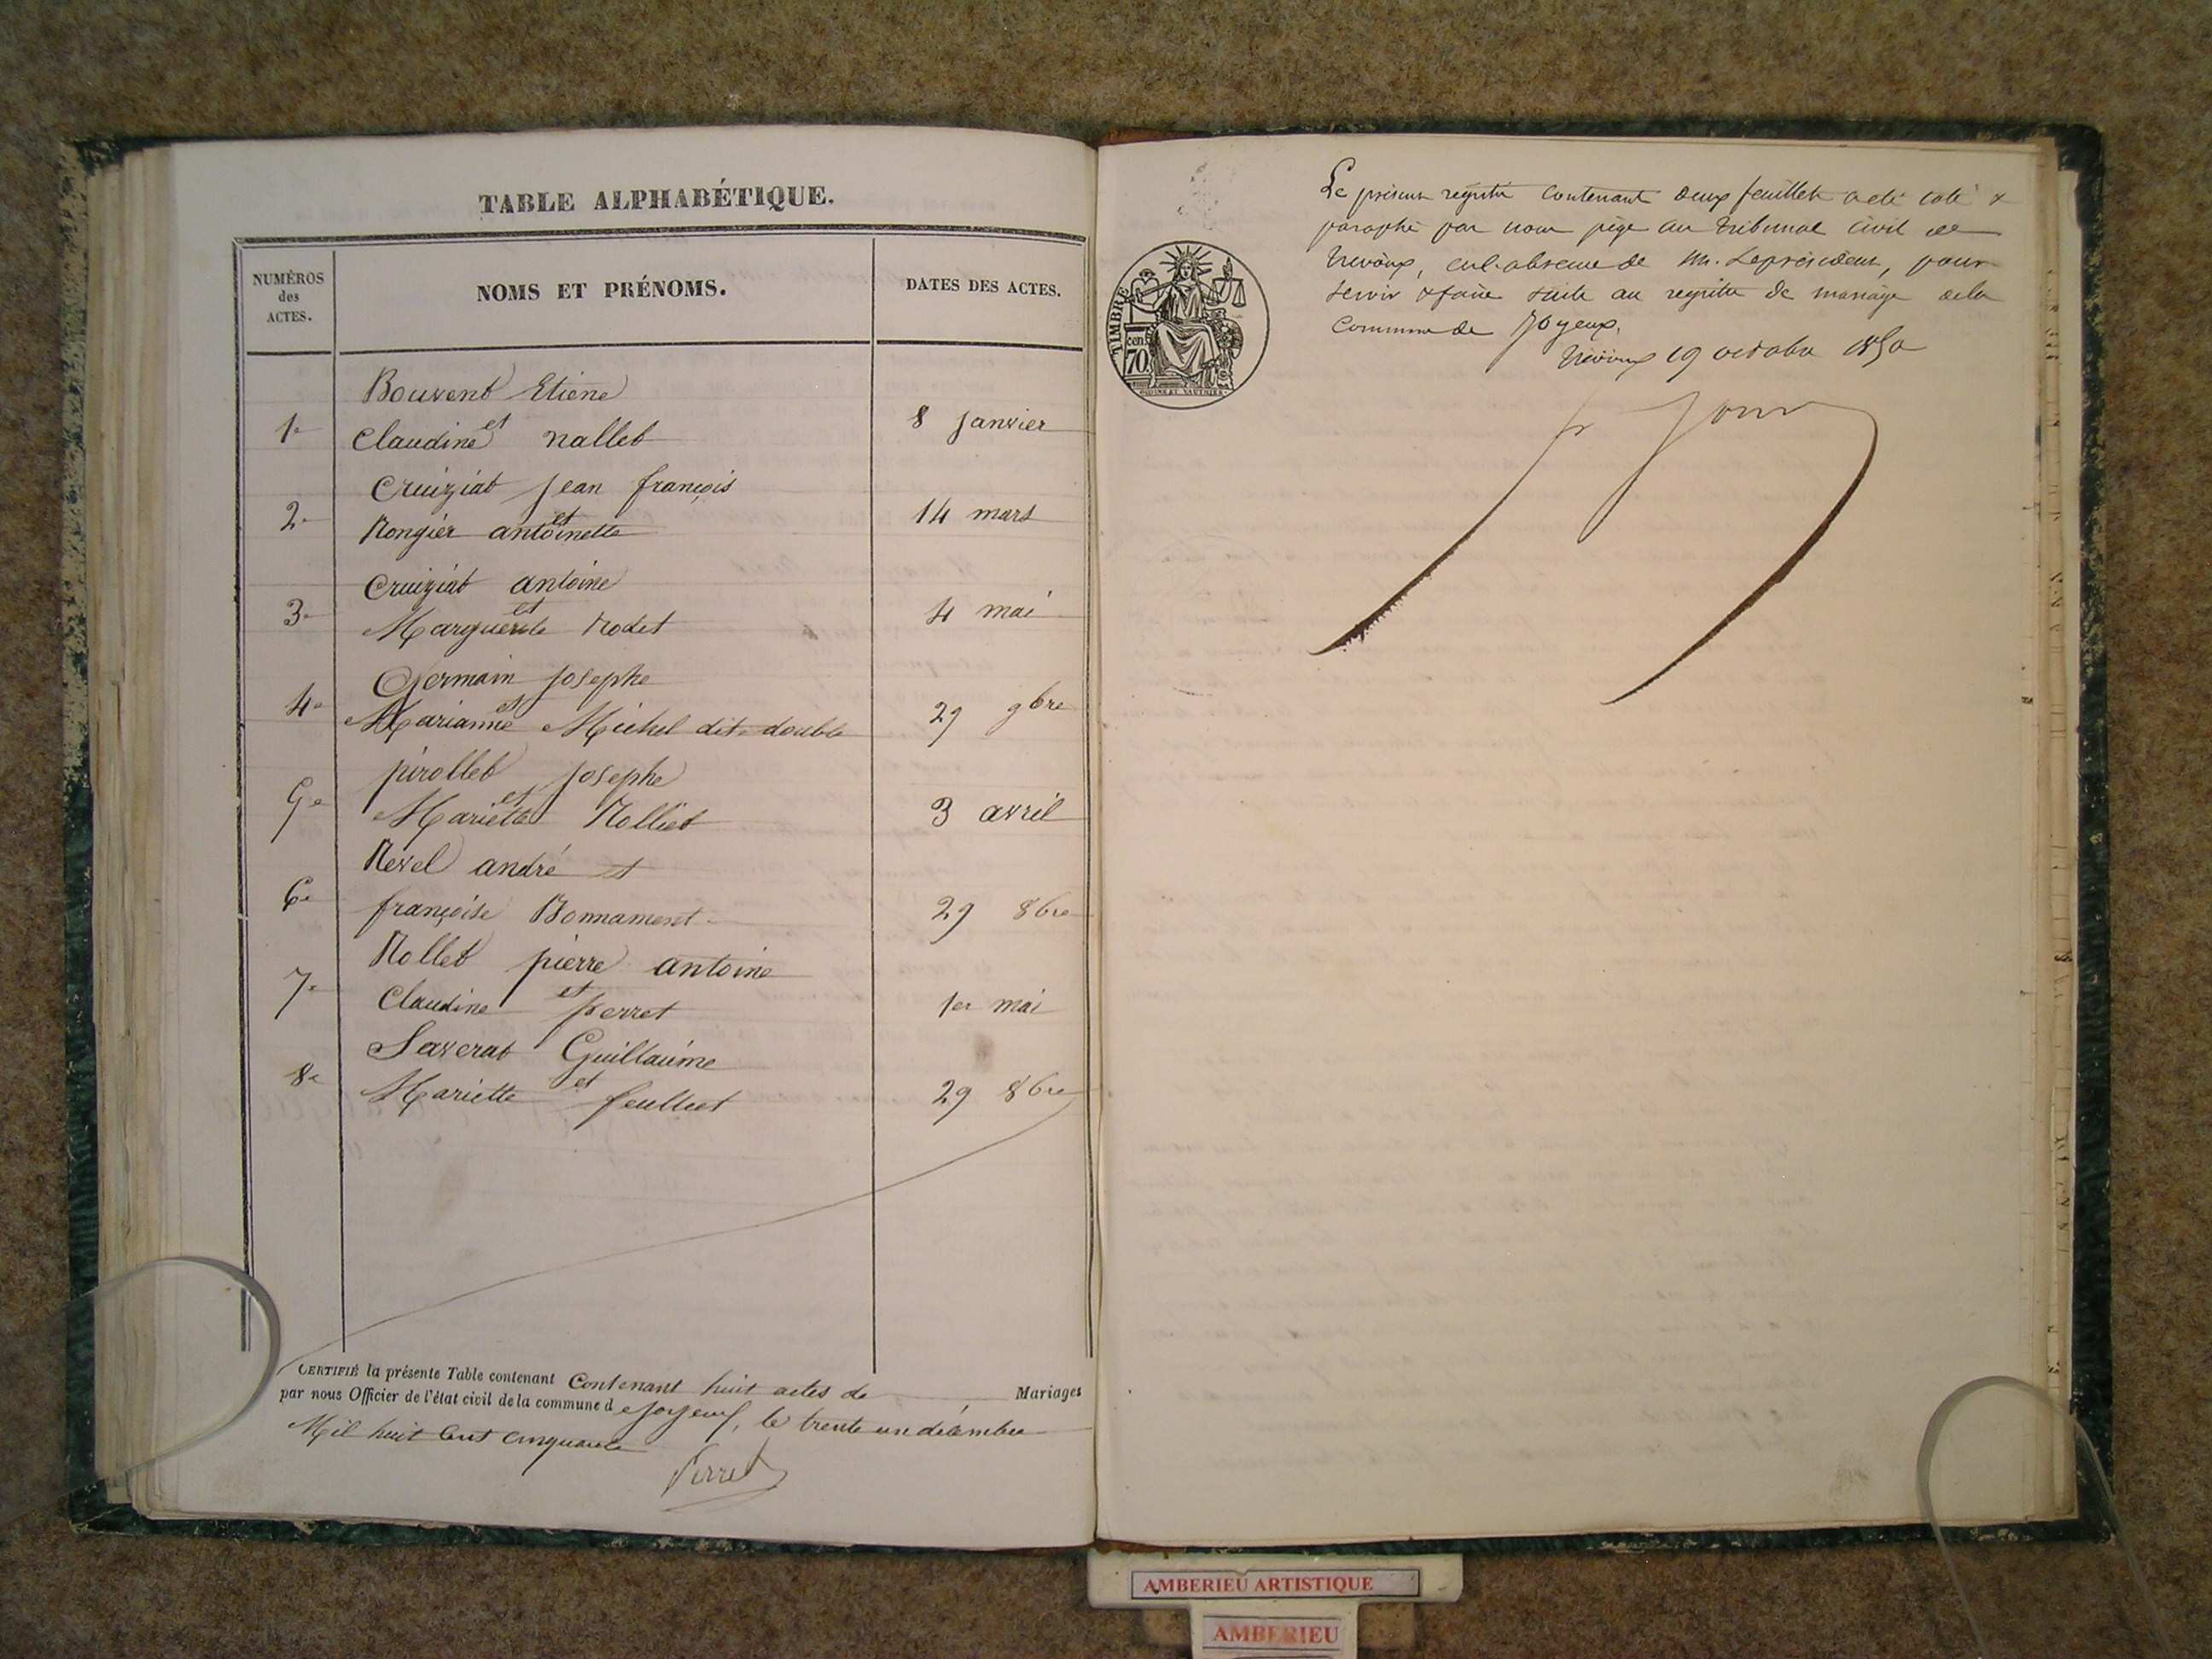 TABLE ALPHABÉTIQUE.
NUMÉROS
des
ACTES.
NOMS ET PRÉNOMS.
DATES DES ACTES.
Bouvent Etiene
1e et 8 janvier
Claudine nallet
Cruiziat jean françois
2e et 14 mars
Rongier antoinette
Cruiziat antoine
3e et 4 mai
Marguerite Rodet
Germain josephe
4e et 29 9bre
Marianne Michel dit double
pirollet josephe
5e et 3 avril
Mariette Rolliet
Revel andré et
6e 29 8bre
françoise Bonnament
Rollet pierre antoine
7e et 1er mai
Claudine perret
Saverat Guillaume
8e et 29 8bre
Mariette feulliet
CERTIFIÉ la présente Table contenant Contenant huit actes de Mariages
par nous Officier de l'état civil de la commune de joyeux, le trente un décembre
Mil huit Cent cinquante
Perret
TIMBRE
70 cen.
Le présent registre contenant deux feuillets a été coté &
paraphé par nous juge au tribunal civil de
Trévoux, en l'absence de M. Le président, pour
servir & faire suite au registre de mariage de la
Commune de Joyeux.
Trévoux 19 octobre 1850
AMBERIEU ARTISTIQUE
AMBERIEU